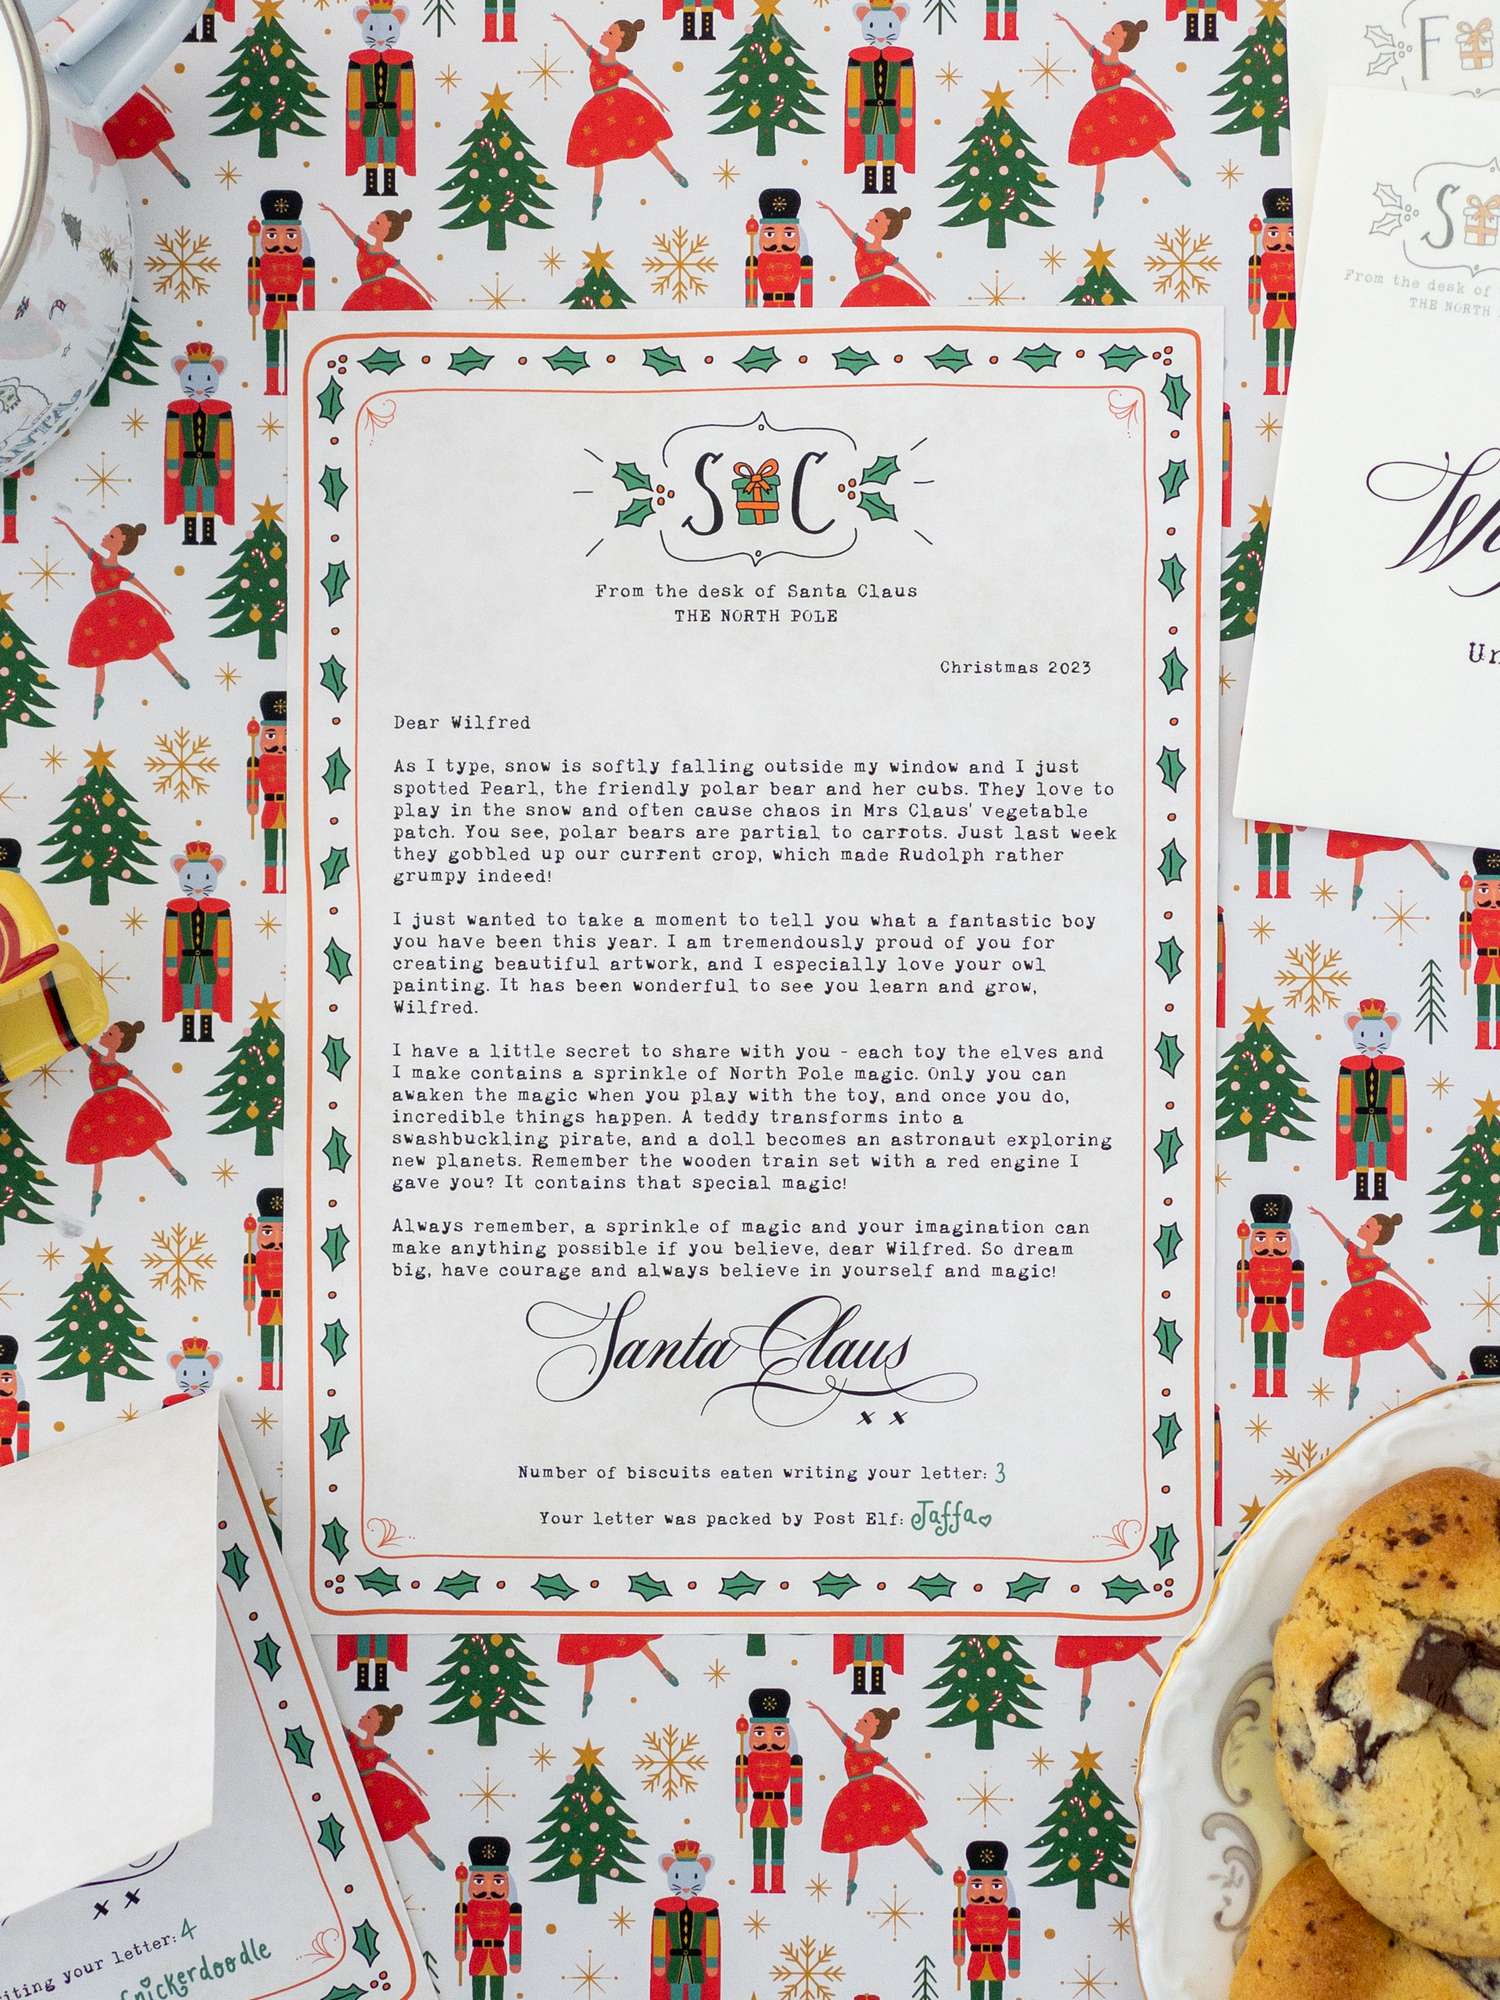 S C
From the desk of Santa Claus
THE NORTH POLE
Christmas 2023
Dear Wilfred
As I type, snow is softly falling outside my window and I just
spotted Pearl, the friendly polar bear and her cubs. They love to
play in the snow and often cause chaos in Mrs Claus' vegetable
patch. You see, polar bears are partial to carrots. Just last week
they gobbled up our current crop, which made Rudolph rather
grumpy indeed!
I just wanted to take a moment to tell you what a fantastic boy
you have been this year. I am tremendously proud of you for
creating beautiful artwork, and I especially love your owl
painting. It has been wonderful to see you learn and grow,
Wilfred.
I have a little secret to share with you - each toy the elves and
I make contains a sprinkle of North Pole magic. Only you can
awaken the magic when you play with the toy, and once you do,
incredible things happen. A teddy transforms into a
swashbuckling pirate, and a doll becomes an astronaut exploring
new planets. Remember the wooden train set with a red engine I
gave you? It contains that special magic!
Always remember, a sprinkle of magic and your imagination can
make anything possible if you believe, dear Wilfred. So dream
big, have courage and always believe in yourself and magic!
Santa Claus
x x
Number of biscuits eaten writing your letter: 3
Your letter was packed by Post Elf: Jaffa
F
S
From the desk of
THE NORTH
x x
your letter: 4